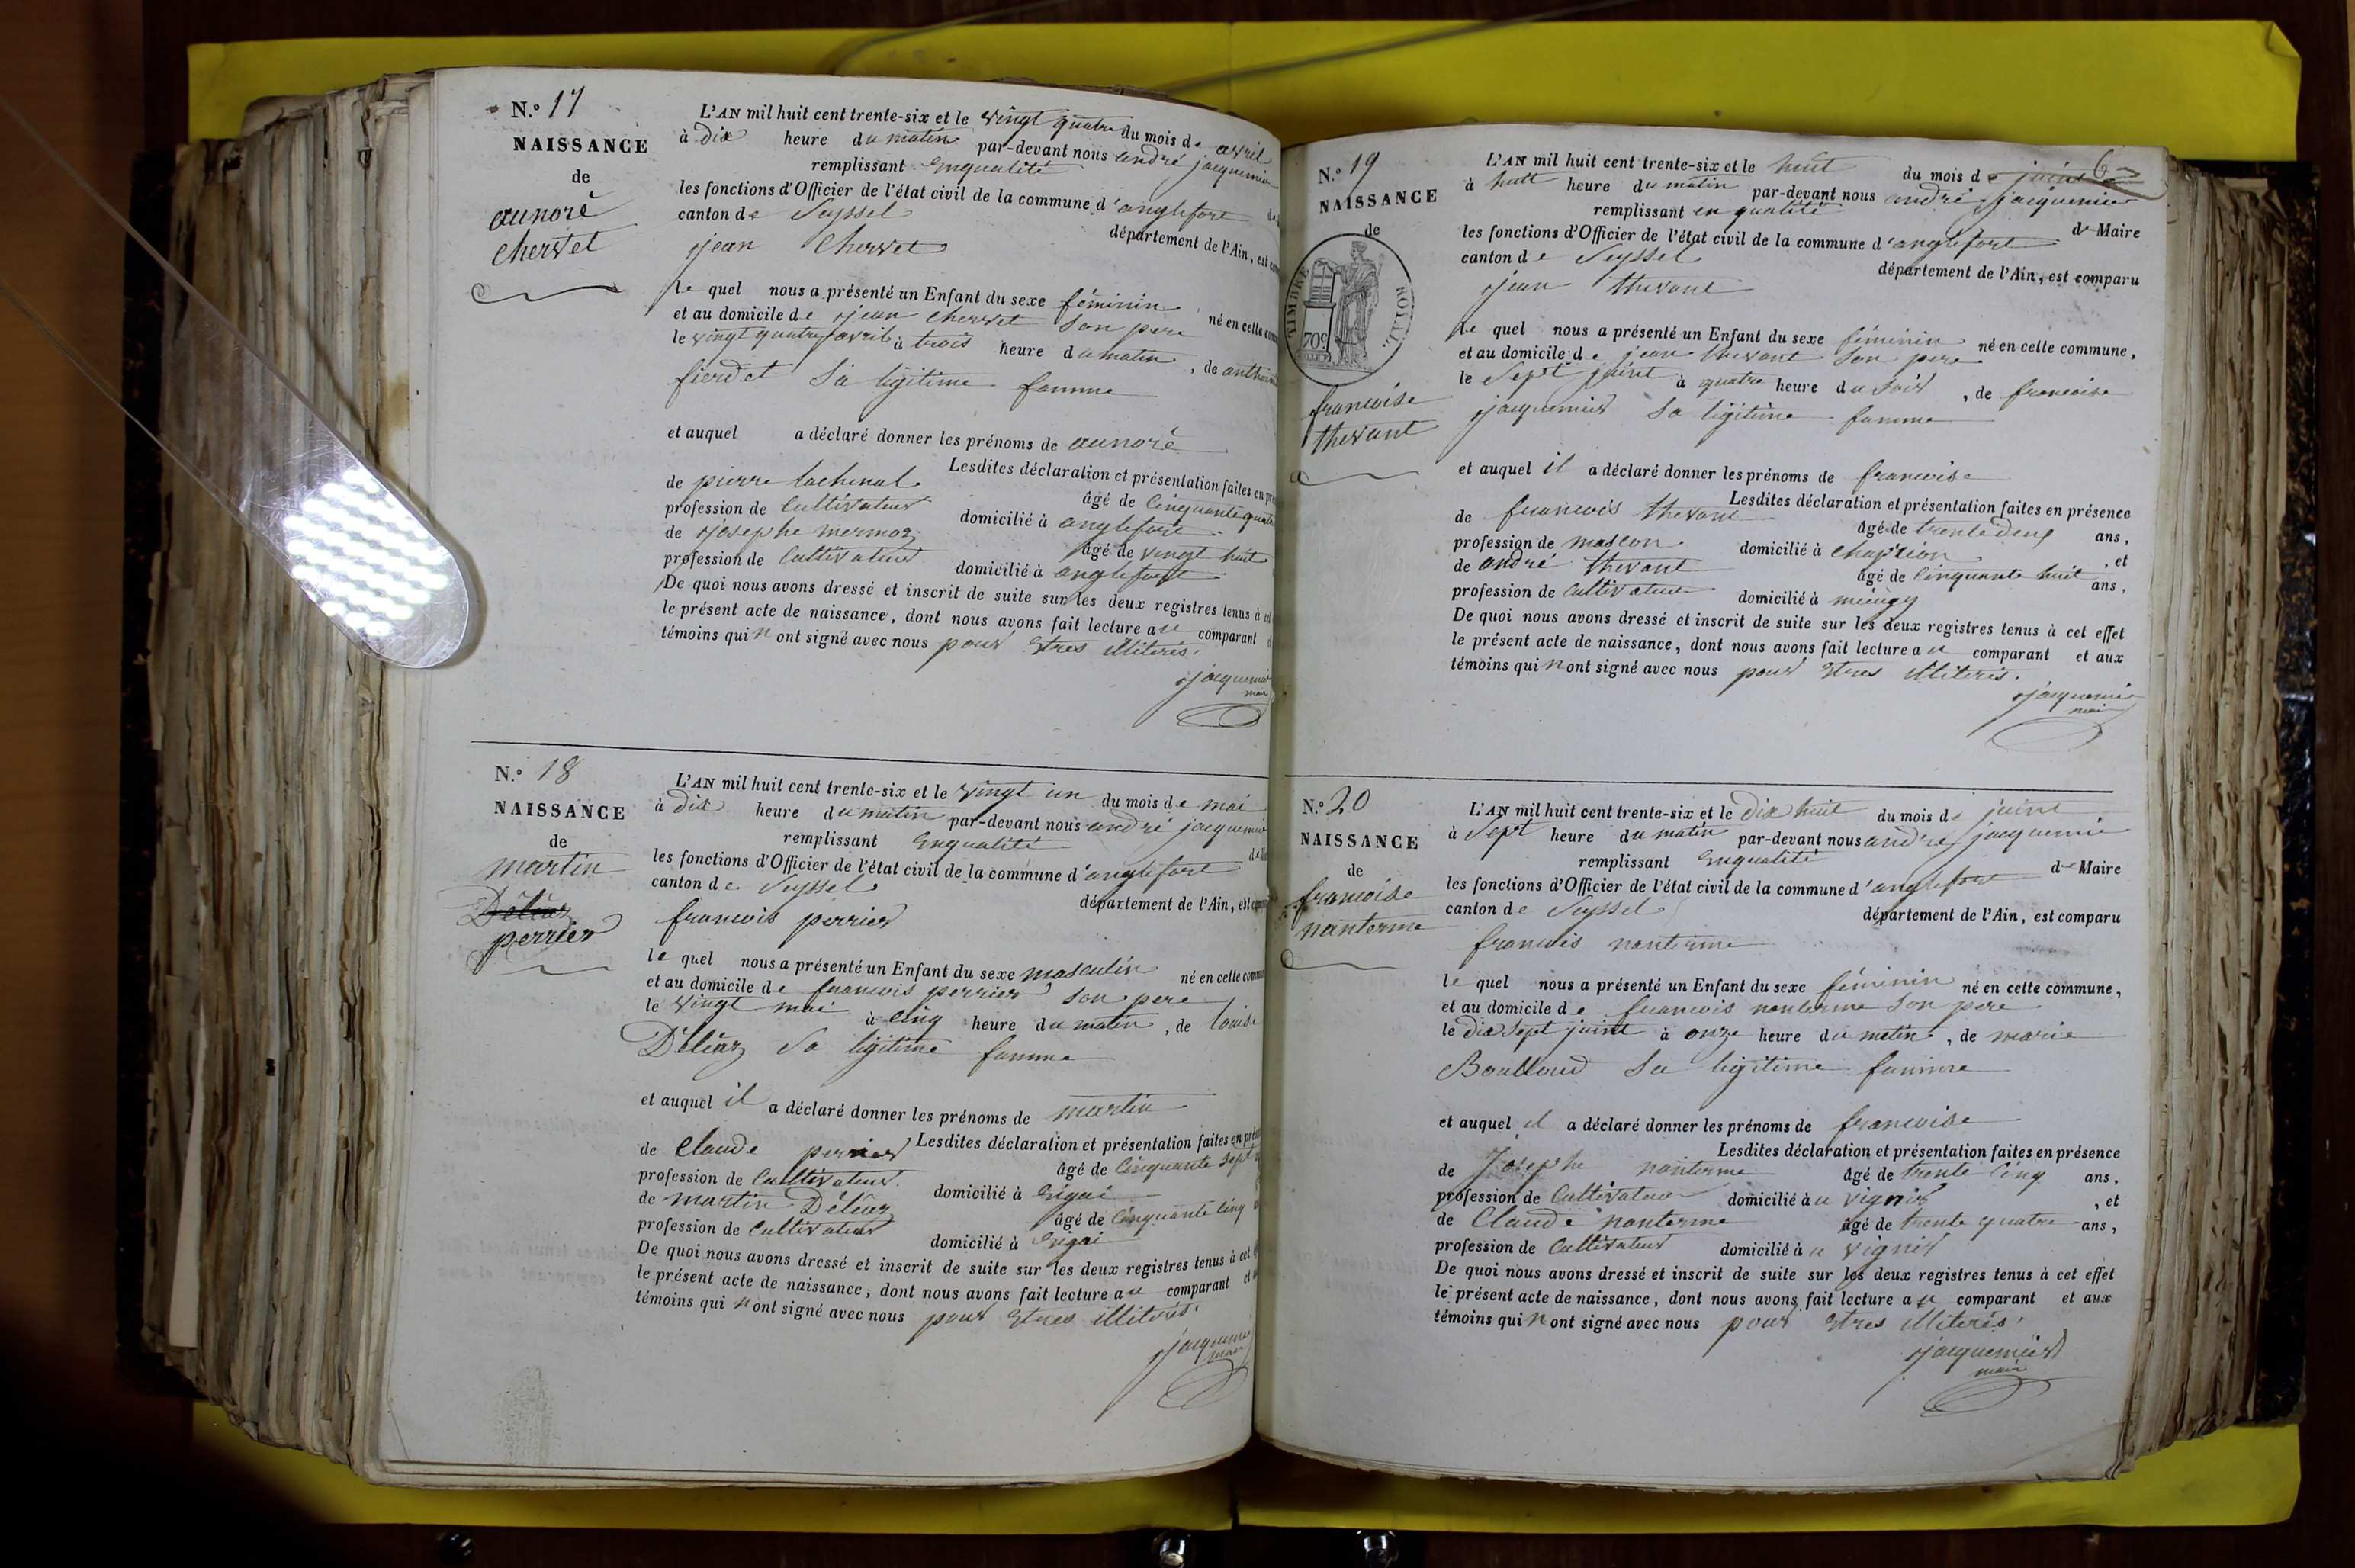 N.º 17
NAISSANCE
de
aunoré
Chervet
L'AN mil huit cent trente-six et le vingt quatre du mois de avril
à dix heure du matin par-devant nous andré jacquemier
remplissant Enqualité
les fonctions d'Officier de l'état civil de la commune d'anglefort
canton de Seyssel département de l'Ain, est
jean Chervet
le quel nous a présenté un Enfant du sexe féminin né en cette
et au domicile de jean Chervet Son pere
le vingt quatre avril à trois heure du matin, de
fierdet Sa ligitime famme
et auquel a déclaré donner les prénoms de aunoré
Lesdites déclaration et présentation faites en
de pierre lachenal âgé de Cinquante quatre
profession de Cultivateur domicilié à anglefort
de Josephe mermoz âgé de vingt huit
profession de Cultivateur domicilié à anglefort
De quoi nous avons dressé et inscrit de suite sur les deux registres tenus à
le présent acte de naissance, dont nous avons fait lecture au comparant
témoins qui n ont signé avec nous pour Etres illiterés.
jacquemier
maire
N.º 18
NAISSANCE
de
martin
Déléaz
perrier
L'AN mil huit cent trente-six et le vingt un du mois de mai
à dix heure du matin par-devant nous andré jacquemier
remplissant Enqualité
les fonctions d'Officier de l'état civil de la commune d'anglefort
canton de Seyssel département de l'Ain, est
francois perrier
le quel nous a présenté un Enfant du sexe masculin né en cette
et au domicile de francois perrier Son pere
le vingt mai à cinq heure du matin, de louise
Déléaz Sa ligitime famme
et auquel il a déclaré donner les prénoms de martin
Lesdites déclaration et présentation faites en
de Claude perrier âgé de Cinquante Sept
profession de Cultivateur domicilié à Erigai
de martin Déléaz âgé de Cinquante cinq
profession de Cultivateur domicilié à Erigai
De quoi nous avons dressé et inscrit de suite sur les deux registres tenus à cet
le présent acte de naissance, dont nous avons fait lecture au comparant et
témoins qui n ont signé avec nous pour Etres illiterés.
jacquemier
maire
6
N.º 19
NAISSANCE
de
TIMBRE ROYAL
70c
francoise
thevant
L'AN mil huit cent trente-six et le huit du mois de juint
à huit heure du matin par-devant nous andré jacquemier
remplissant en qualité de Maire
les fonctions d'Officier de l'état civil de la commune d'anglefort
canton de Seyssel département de l'Ain, est comparu
jean thevant
le quel nous a présenté un Enfant du sexe féminin né en cette commune,
et au domicile de jean thevant Son pere
le Sept juint à quatre heure du Soir, de francoise
jacquemier Sa ligitime famme
et auquel il a déclaré donner les prénoms de francoise
Lesdites déclaration et présentation faites en présence
de francois thevant âgé de trente deux ans,
profession de masson domicilié à , et
de andré thevant âgé de Cinquante huit ans,
profession de Cultivateur domicilié à
De quoi nous avons dressé et inscrit de suite sur les deux registres tenus à cet effet
le présent acte de naissance, dont nous avons fait lecture au comparant et aux
témoins qui n ont signé avec nous pour Etres illiterés.
jacquemier
maire
N.º 20
NAISSANCE
de
francoise
nanterme
L'AN mil huit cent trente-six et le dix huit du mois de juint
à Sept heure du matin par-devant nous andré jacquemier
remplissant Enqualité de Maire
les fonctions d'Officier de l'état civil de la commune d'anglefort
canton de Seyssel département de l'Ain, est comparu
francois nanterme
le quel nous a présenté un Enfant du sexe féminin né en cette commune,
et au domicile de francois nanterme Son pere
le dix Sept juint à onze heure du matin, de marie
Boulloud Sa ligitime famme
et auquel il a déclaré donner les prénoms de francoise
Lesdites déclaration et présentation faites en présence
de Josephe nanterme âgé de trente Cinq ans,
profession de Cultivateur domicilié à a vignis , et
de Claude nanterme âgé de trente quatre ans,
profession de Cultivateur domicilié à a vignis
De quoi nous avons dressé et inscrit de suite sur les deux registres tenus à cet effet
le présent acte de naissance, dont nous avons fait lecture au comparant et aux
témoins qui n ont signé avec nous pour Etres illiterés.
jacquemier
maire